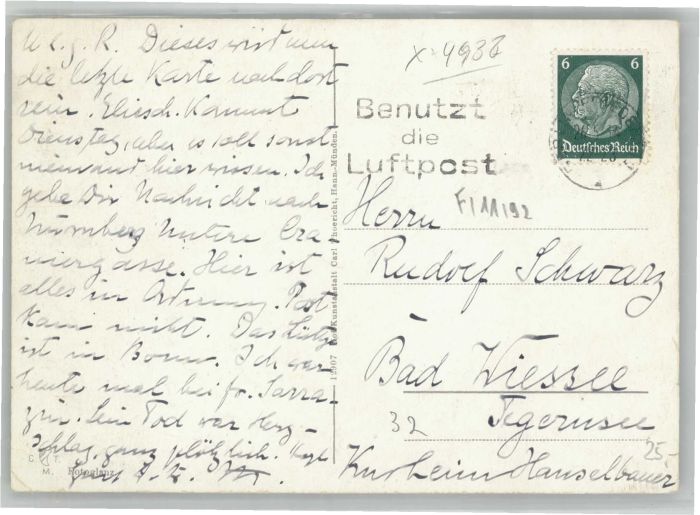 M. l. g. R. Dieses wird nun
die letzte Karte nach dort
sein. Elisch. kommt
Dienstag, aber es soll sonst
niemand hier wissen. Ich
gebe Dir Nachricht nach
Nürnberg Untere
gasse. Hier ist
alles in Ordnung. Post
kam nicht. Das
ist in Bonn. Ich war
heute mal bei fr. Sarra-
zin. Sein Tod war Herz-
schlag, ganz plötzlich.
C. T.
M. Fotoglanz
12907 Kunstanstalt Carl Thoericht, Hann.-Münden.
X 4938
Benutzt
die
Luftpost
6 6
Deutsches Reich
F/11/92
Herrn
Rudolf Schwarz
Bad Wiessee
32 Tegernsee
25-
Kurheim Hanselbauer